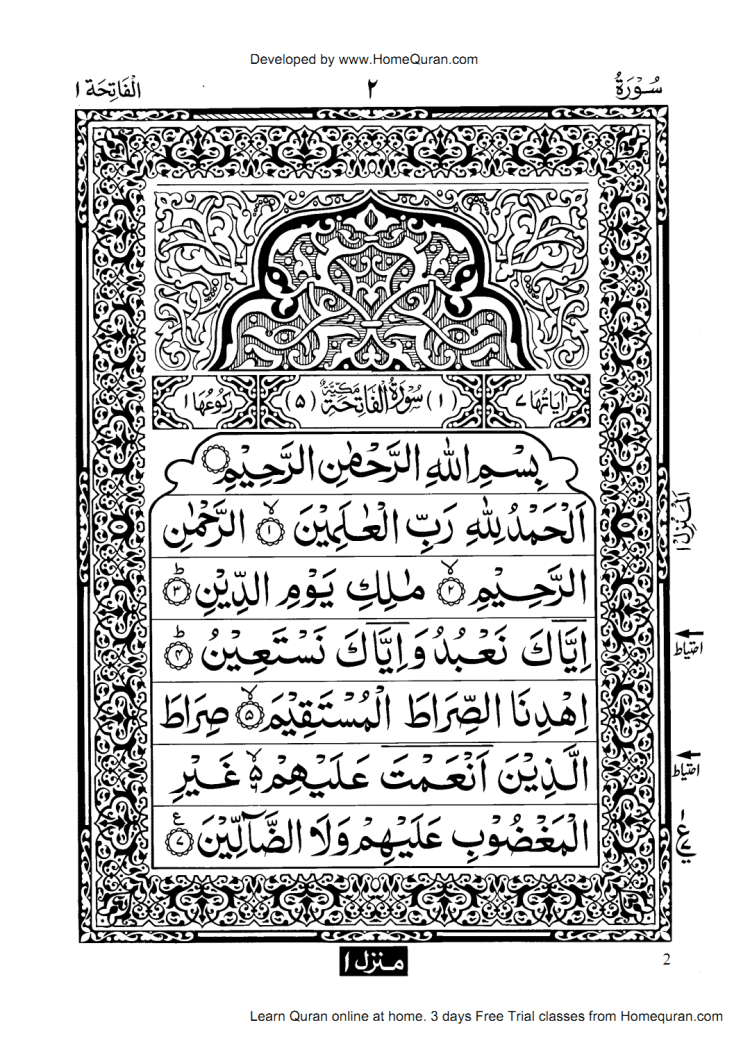 Developed by www.HomeQuran.com
سُوْرَةُ ٢ الْفَاتِحَة ١
اٰيَاتُهَا ٧ (١) سُوْرَةُ الْفَاتِحَةِ مَكِّيَّةٌ (٥) رُكُوْعُهَا ١
بِسْمِ اللّٰهِ الرَّحْمٰنِ الرَّحِيْمِ
اَلْحَمْدُ لِلّٰهِ رَبِّ الْعٰلَمِيْنَ ۙ ١ الرَّحْمٰنِ
الرَّحِيْمِ ۙ ٢ مٰلِكِ يَوْمِ الدِّيْنِ ؕ ٣
اِيَّاكَ نَعْبُدُ وَ اِيَّاكَ نَسْتَعِيْنُ ؕ ٤
اِهْدِنَا الصِّرَاطَ الْمُسْتَقِيْمَ ۙ ٥ صِرَاطَ
الَّذِيْنَ اَنْعَمْتَ عَلَيْهِمْ ۙ۵ ٦ غَيْرِ
الْمَغْضُوْبِ عَلَيْهِمْ وَلَا الضَّآلِّيْنَ ٧ ع
اَلْمَنْزِل ١
احتياط
احتياط
ع ٧
منزل ١
2
Learn Quran online at home. 3 days Free Trial classes from Homequran.com